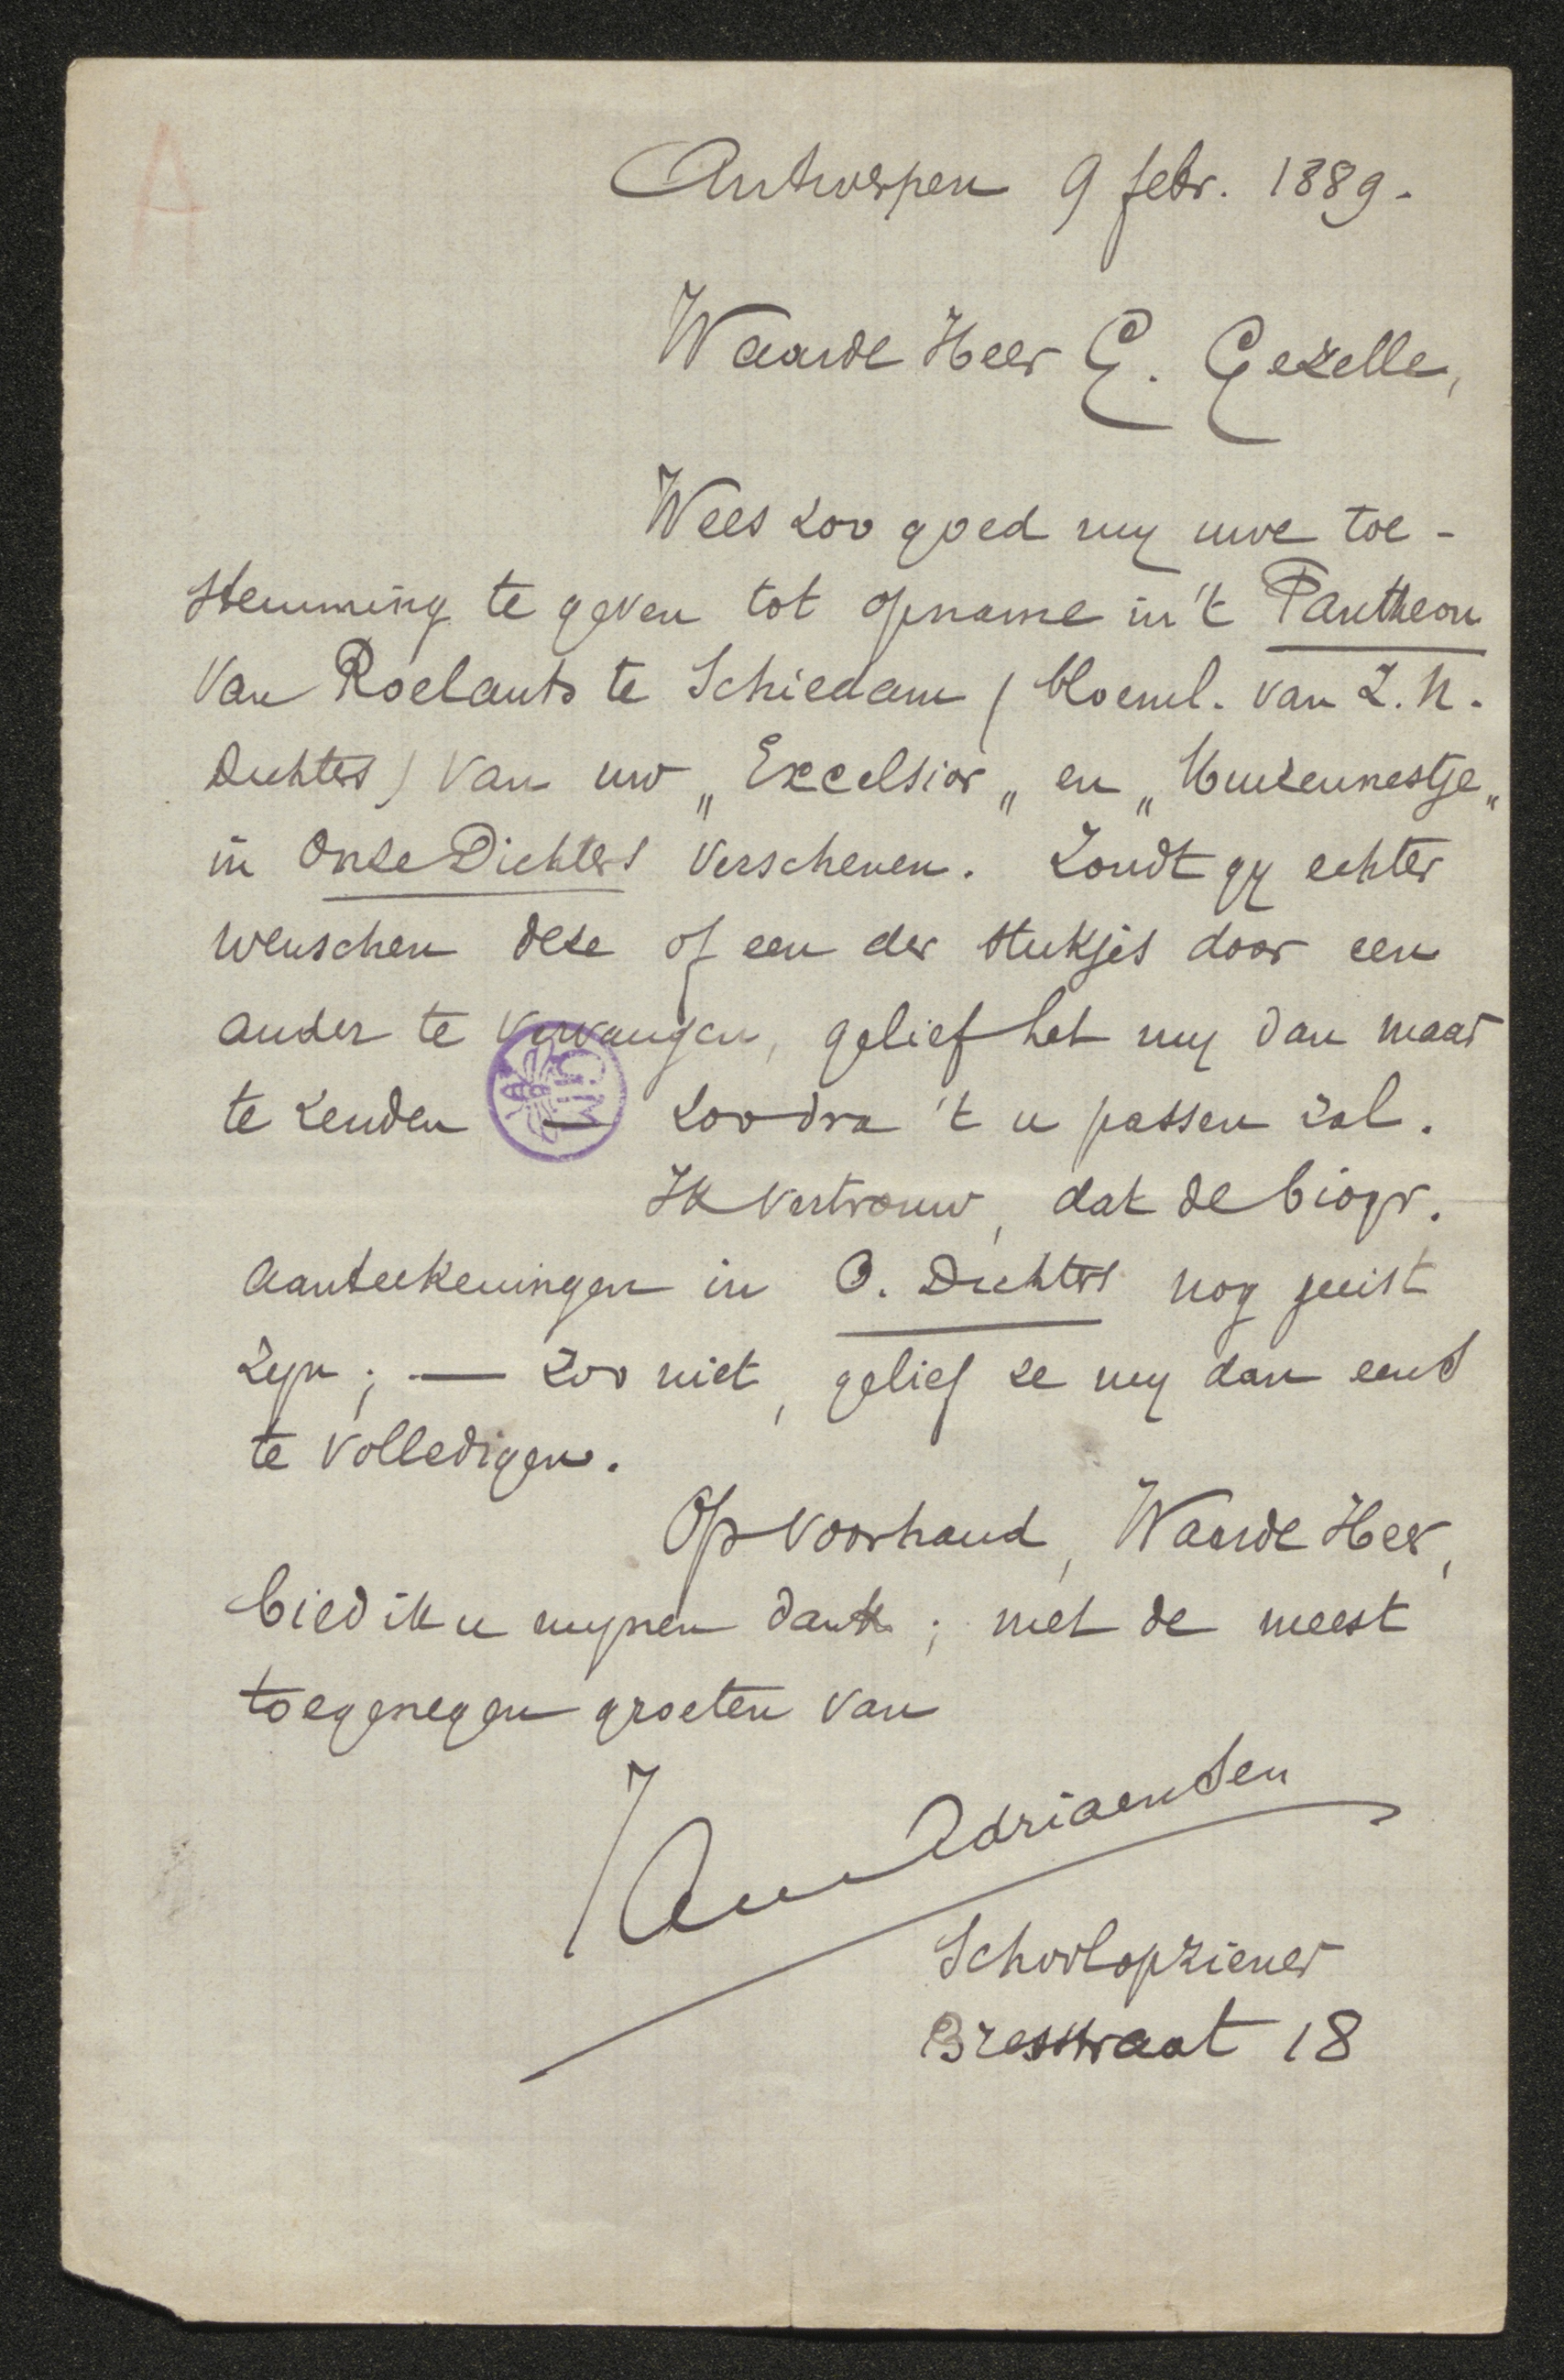 A
Antwerpen 9 febr. 1889.
Waarde Heer G. Gezelle,
Wees zoo goed my uwe toe-
stemming te geven tot opname in 't Pantheon
van Roelants te Schiedam (bloeml. van Z. N.
Dichters) van uw „Excelsior„ en „Muizennestje„
in Onze Dichters verschenen. Zoudt gy echter
wenschen deze of een der stukjes door een
ander te vervangen, gelief het my dan maar
te zenden — zoodra 't u passen zal.
Ik vertrouw, dat de biogr.
aanteekeningen in O. Dichters nog juist
zyn; — zoo niet, gelief ze my dan eens
te volledigen.
Op voorhand, Waarde Heer,
bied ik u mynen dank; met de meest
toegenegen groeten van
Jan Adriaensen
Schoolopziener
Bresstraat 18